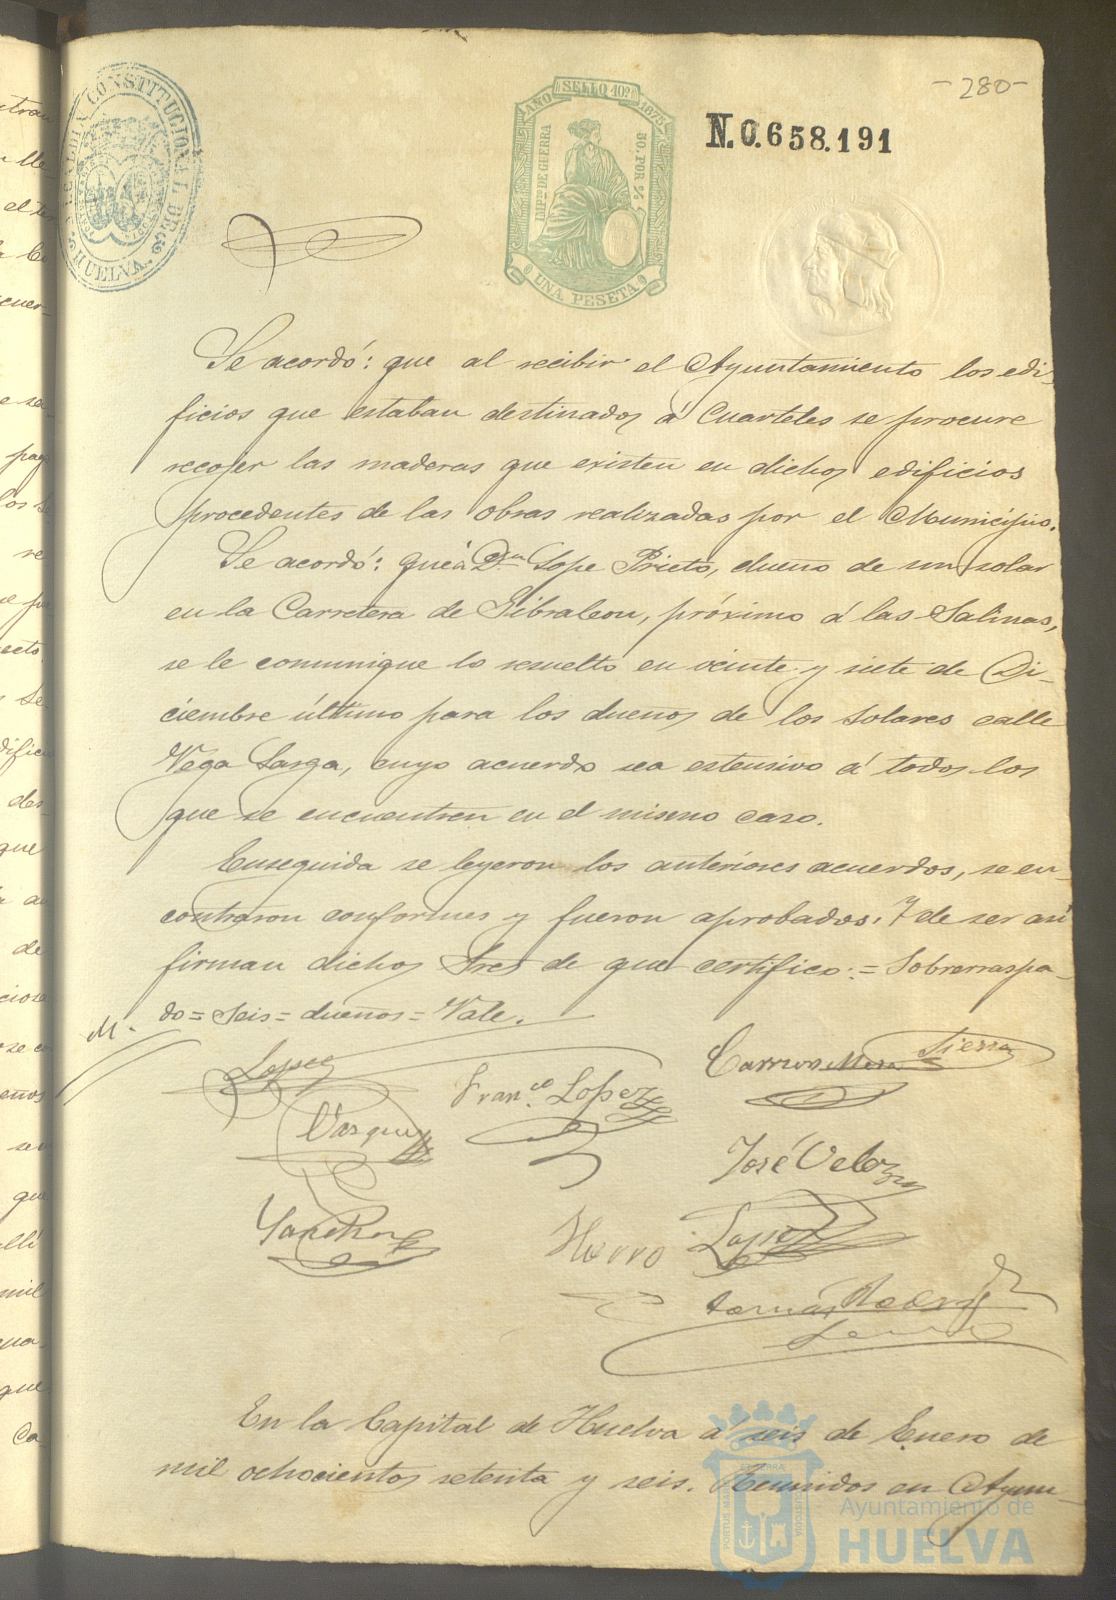 -280-
ALCALDIA CONSTITUCIONAL DE HUELVA
AÑO SELLO 10º 1875
IMPTO DE GUERRA
50. POR %
UNA PESETA
N.0.658.191
Se acordó: que al recibir el Ayuntamiento los edi-
ficios que estaban destinados á Cuarteles se procure
recojer las maderas que existen en dichos edificios
procedentes de las obras realizadas por el Municipio.
Se acordó: que á Dn Lope Prieto, dueño de un solar
en la Carretera de Gibraleon, próximo á las Salinas,
se le comunique lo resuelto en veinte y siete de Di-
ciembre último para los dueños de los solares calle
Vega Larga, cuyo acuerdo sea estensivo á todos los
que se encuentren en el mismo caso.
Enseguida se leyeron los anteriores acuerdos, se en-
contraron conformes y fueron aprobados. Y de ser así
firman dichos Sres de que certifico: = Sobrerraspa-
do = Seis = dueños = Vale.
M.
Lopez
Carrion Mora Tierra
Franco Lopez
Vazquez
José Veloz
Sanchez
Horro Lopez
Tomás Rodrz
En la Capital de Huelva á seis de Enero de
mil ochocientos setenta y seis. Reunidos en Ayun-
Ayuntamiento de
HUELVA